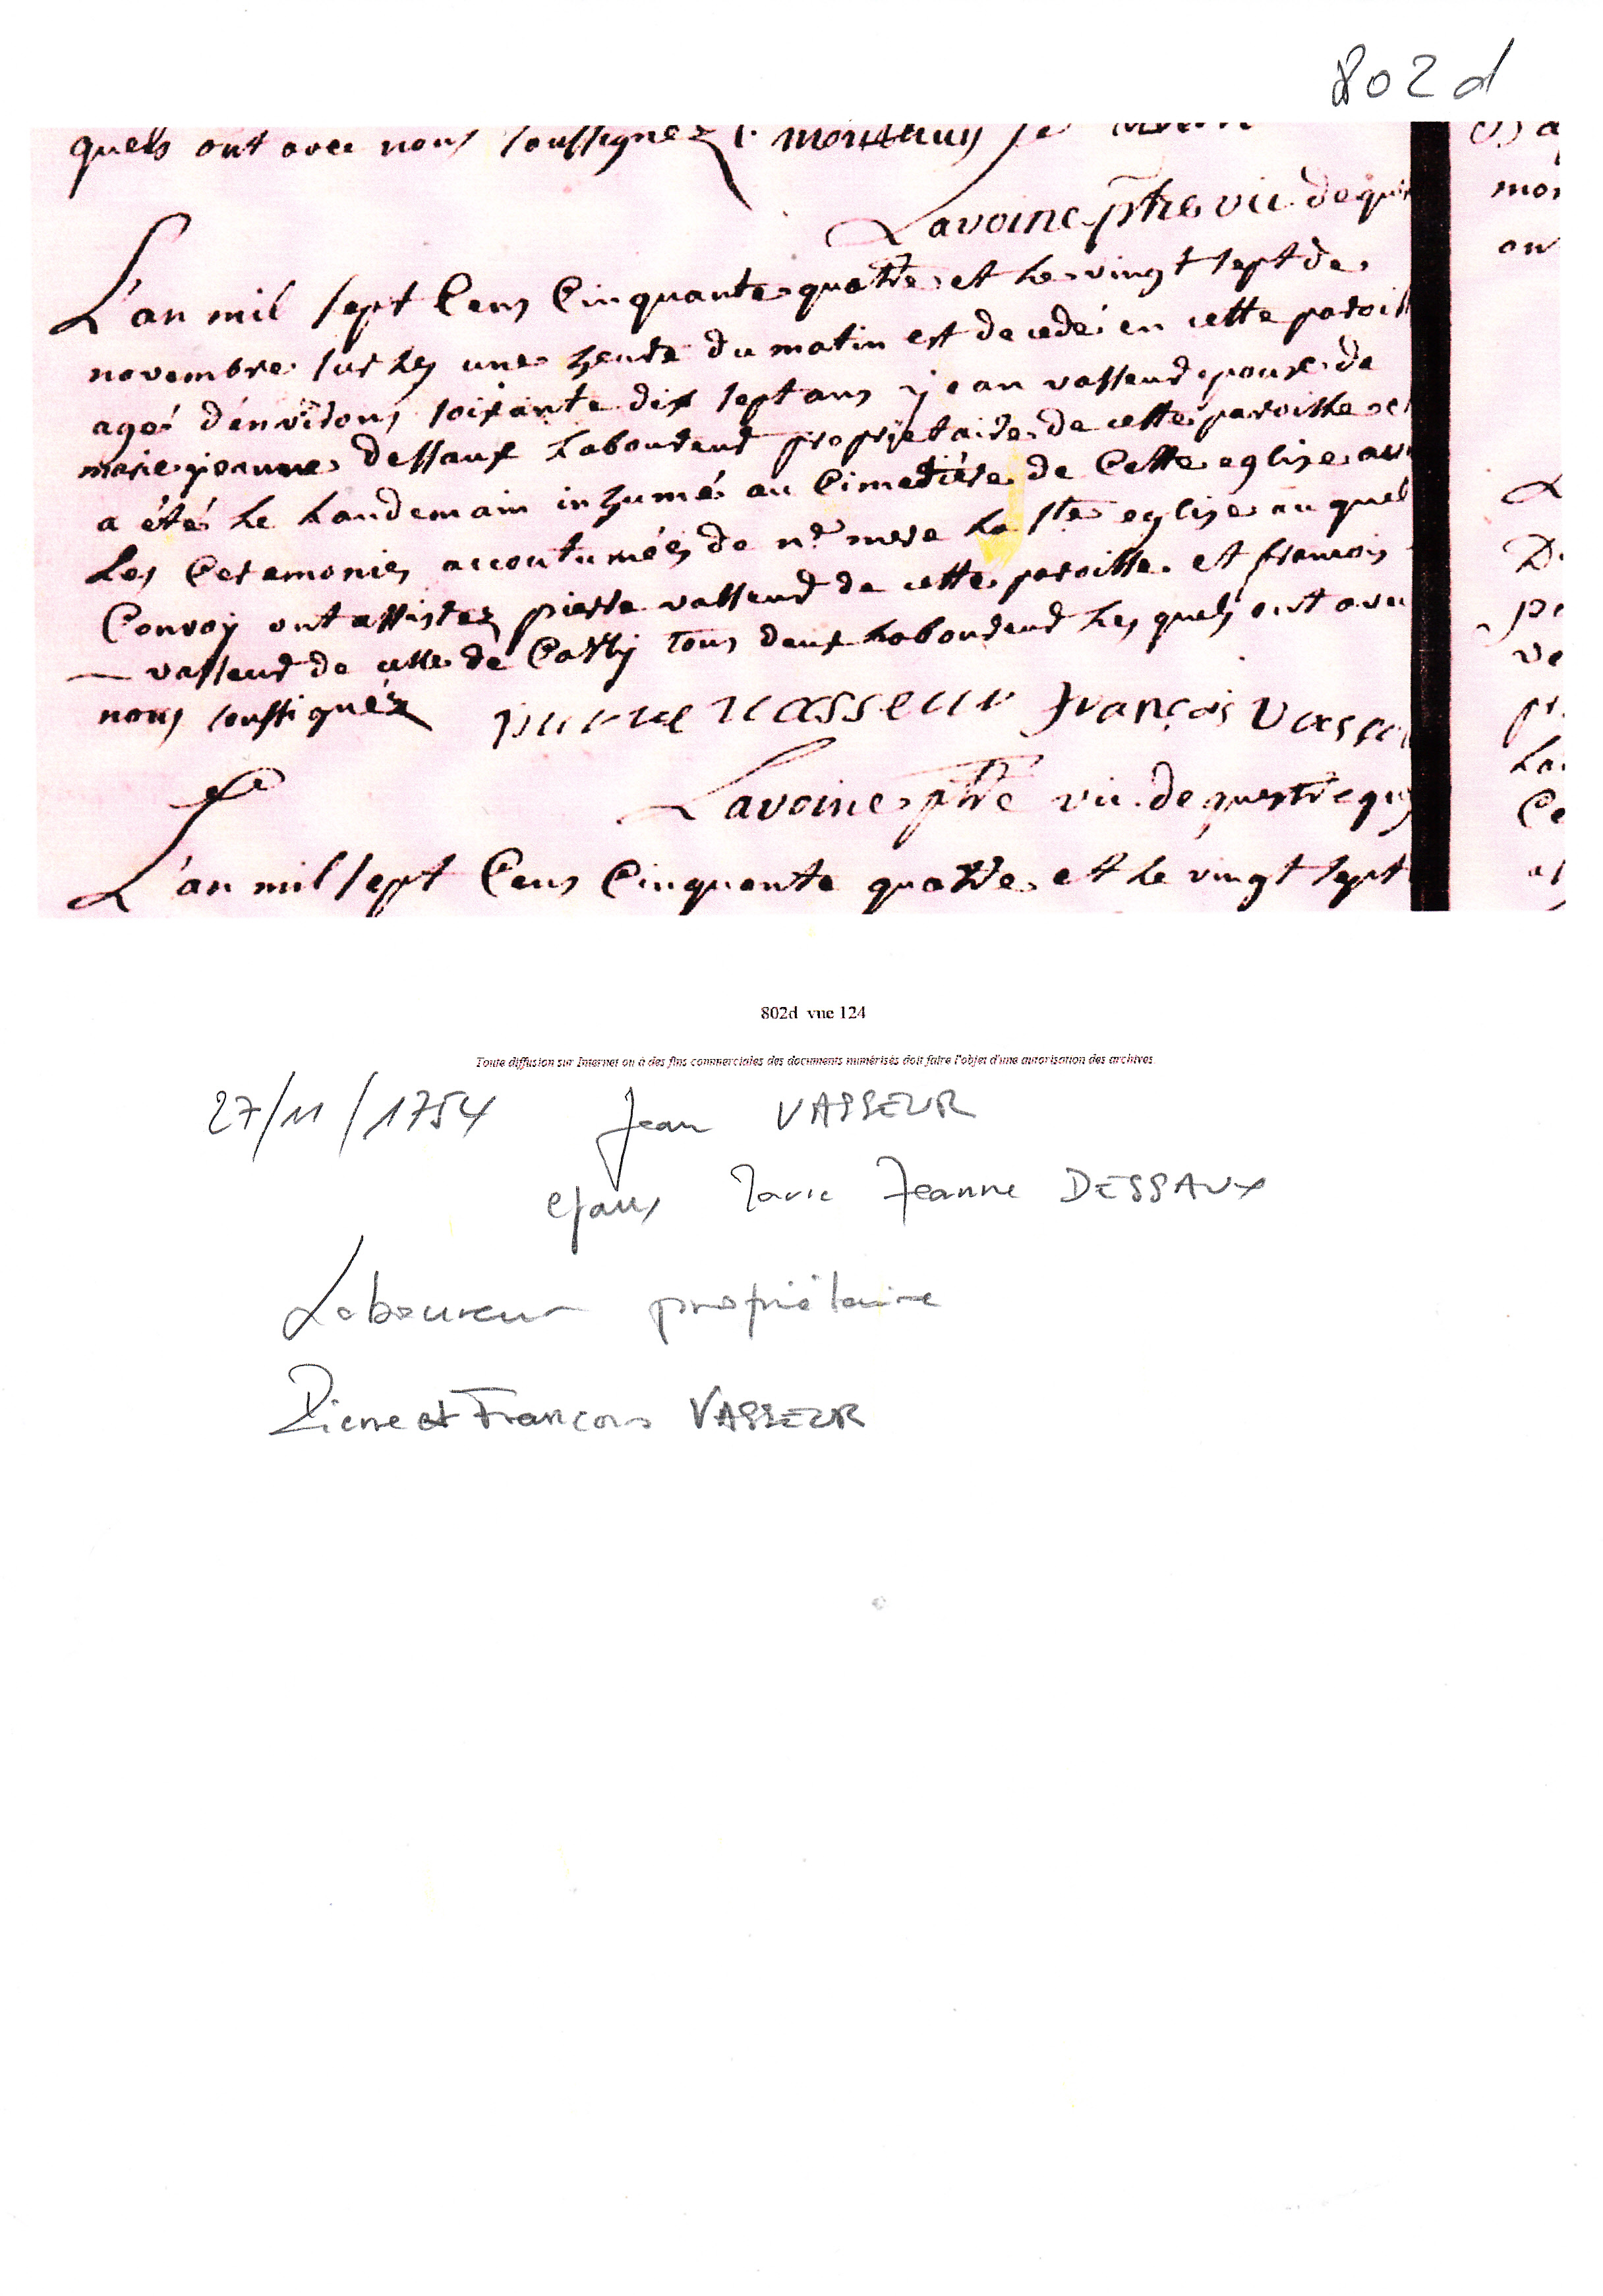 802d
quels ont avec nous soussignez
Lavoine ptre vic de
L'an mil sept Cens Cinquante quatre et Le vingt sept de
novembre sur Les une heure du matin est decedé en cette paroiss
agé d'environs soixante dix sept ans jean vasseur epoux de
marie jeanne dessaux Laboureur proprietaire de cette paroisse et
a été Le Landemain inhumé au Cimetiére de Cette eglise avec
Les Ceremonies accoutumées de nre mere La ste eglise au quel
Convoy ont assistez pierre vasseur de cette paroisse et francois
vasseur de celle de Cathy tous deux Laboureur Les quels ont avec
nous soussignéz pierre vasseur François vasseu
Lavoine ptre vic. de questrequ
L'an mil sept Cens Cinquante quatre et Le vingt sept
mon
on
L
D
pe
ve
pr
La
Ce
802d vue 124
Toute diffusion sur Internet ou à des fins commerciales des documents numérisés doit faire l'objet d'une autorisation des archives
27/11/1754 Jean VASSEUR
epaux Marie Jeanne DESSAUX
Laboureur propriétaire
Pierre et François VASSEUR